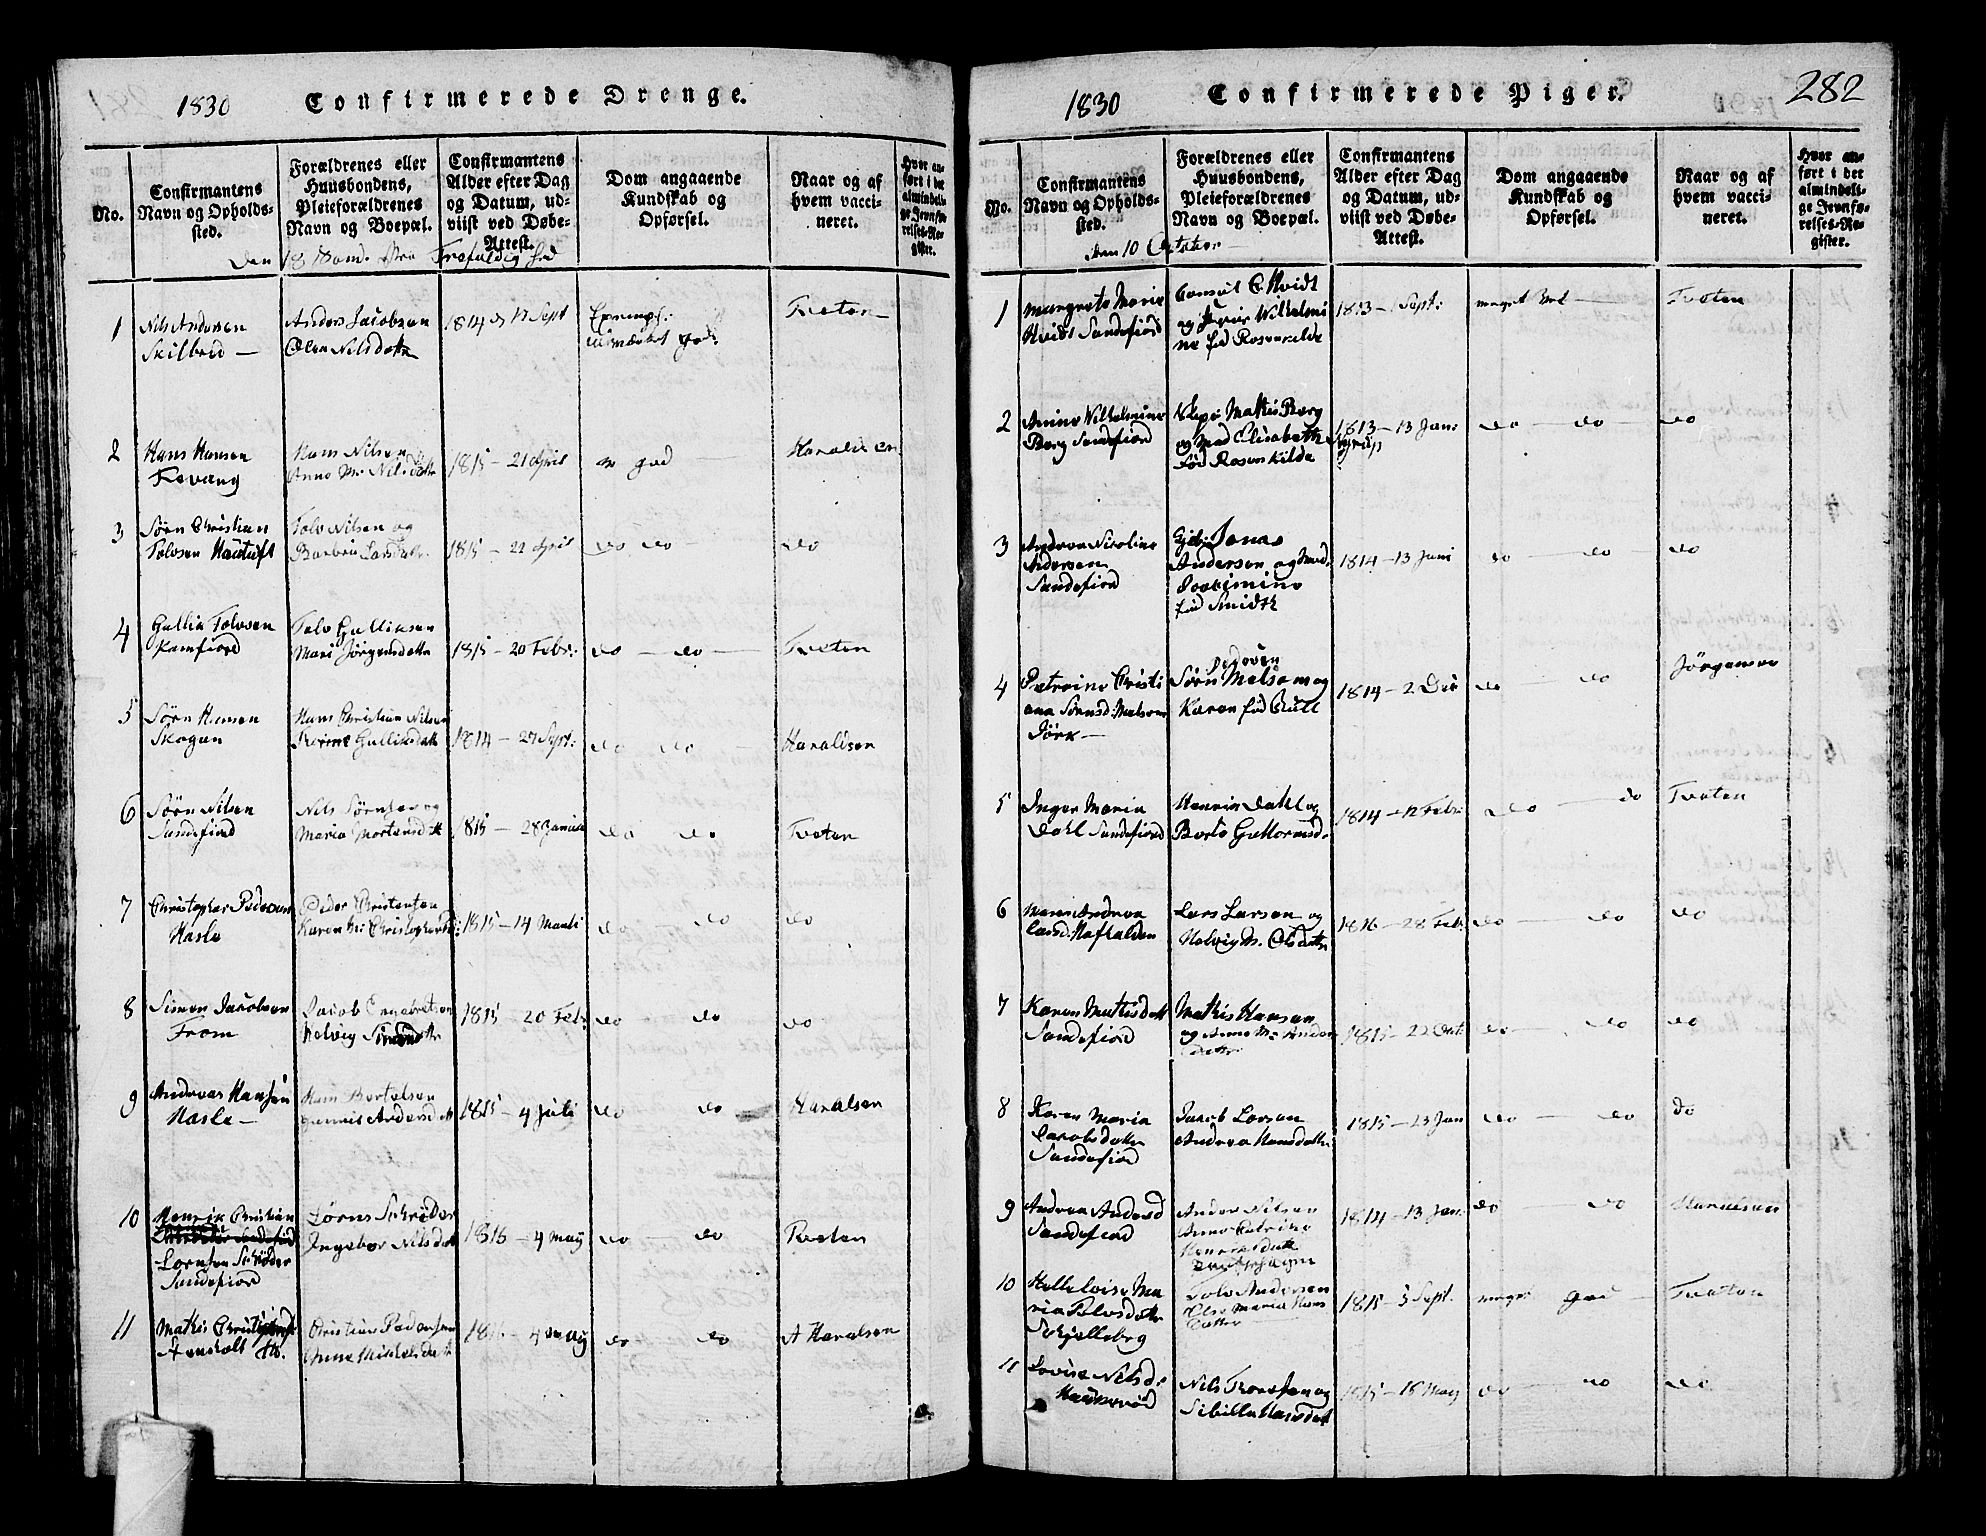 1830 Confirmerede Drenge.
No.
Confirmantens
Navn og Opholds-
sted.
Forældrenes eller
Huusbondens,
Pleieforældrenes
Navn og Boepæl.
Confirmantens
Alder efter Dag
og Datum, ud-
viist ved Døbe-
Attest.
Dom angaaende
Kundskab og
Opførsel.
Naar og af
hvem vacci-
neret.
Hvor an-
ført i det
almindeli-
ge Jevnfø-
relses-Re-
gister.
Den 18 Sønd.
1
Nils Andersen
Skilbred —
Anders Jacobsen
Olea Nilsdattr
1814 17 Sept
Exempl:
udmærket god:
Tveten —
2
Hans Hansen
Fevang
Hans Nilsen
Anne M. Nilsdattr
1815 — 21 April
m god —
Haraldsen
3
Sørn Christian
Tolvsen Hautuft
Tolv Nilsen og
Barbra Larsdattr.
1815 — 22 April
do do —
do
4
Gullik Tolvsen
Kamfiord
Tolv Gulliksen
Mari Jørgensdattr
1815 — 20 Febr:
do — do —
Tveten
5
Sørn Hansen
Skogan
Hans Christian Nilsen
Gulliksdattr
1814 — 27 Sept:
do do —
Haraldsen
6
Sørn Nilsen
Sandefiord
Nils Sørnsen og
Maria Mortensdattr
1815 — 28 Januar
do do
Tveten
7
Christopher Pedersen
Hasle
Peder Christensen
Karen M: Christophersd:
1815 — 14 Marti
do do
do
8
Simon Jacobsen
Fram
Jacob Engebretsen
Helvig Simonsdattr
1815 — 20 Febr
do do
do
9
Andreas Hansen
Hasle —
Hans Bertelsen
Andersdatt
1815 — 4 Juli
do do
Haralsen
10
Henrik Christian
Lornsen Schrøder
Sandefiord
Lorns Schrøder
Ingebor Nilsdatt
1816 — 4 May
do do
Tveten
11
Mathis Christians:
Christian Pedersen
Anne Mikkelsdatt
4 May
do do
A Haralsen
1830 Confirmerede Piger. 282
No.
Confirmantens
Navn og Opholds-
sted.
Forældrenes eller
Huusbondens,
Pleieforældrenes
Navn og Boepæl.
Confirmantens
Alder efter Dag
og Datum, ud-
viist ved Døbe-
Attest.
Dom angaaende
Kundskab og
Opførsel.
Naar og af
hvem vacci-
neret.
Hvor an-
ført i det
almindeli-
ge Jevnfø-
relses-Re-
gister.
den 10 October
1
Margrete Marie
Hvidt Sandefiord
Consul C. Hvidt
og Wilhelmi
ne fød Rosenkilde
1813 — Sept:
meget vel —
Tveten
2
Anne Wilhelmine
Berg Sandefiord
Mathis Berg
og Mad Elisabeth
fød Rosenkilde
1813 — 13 Jan:
do — do —
do
3
Andrea Nicoline
Andersen
Sandefiord
Jonas
Andersen og Mad.
Joakimine
fød Smidth
1814 — 13 Juni
do — do —
do
4
Petrine Christi
ana Sørnsd: Melsom
Sørn Pedersen Melsom og
Karen fød Bull
1814 — 2
do — do
Jørgensen
5
Inger Maria
Dahl Sandefiord
Henrik Dahl og
Berte Guttormsd:
1814 — 12 Febr:
do — do
Tveten
6
Maren Andrea
Larsd:
Lars Larsen og
Helvig M. Olsdattr
1816 — 28 Feb:
do — do
do
7
Karen Mathisdatt
Sandefiord
Mathis Hansen
og Anne M. Anders
dattr
1815 — 22 Oct.
do — do
do
8
Karen Maria
Jacobsdattr
Sandefiord
Jacob Larsen
Andrea Hansdattr
1815 — 23 Jan
do — do
do
9
Andrea Andersd
Sandefiord
Ander Nilsen
Anne Catrine
Henriksdatt
1814 — 13 Jan.
do do
Haralsen
10
Helleloise Ma
ria Tolvsdattr
Schjellebrg
Tolv Andersen
Else Maria Hans
datter
1815 — 3 Sept.
meget god —
Tveten
11
Lovise Nilsd:
Haukerød
Nils Tronsen og
Sibille Hansdatt
1815 — 16 May
do — do
do